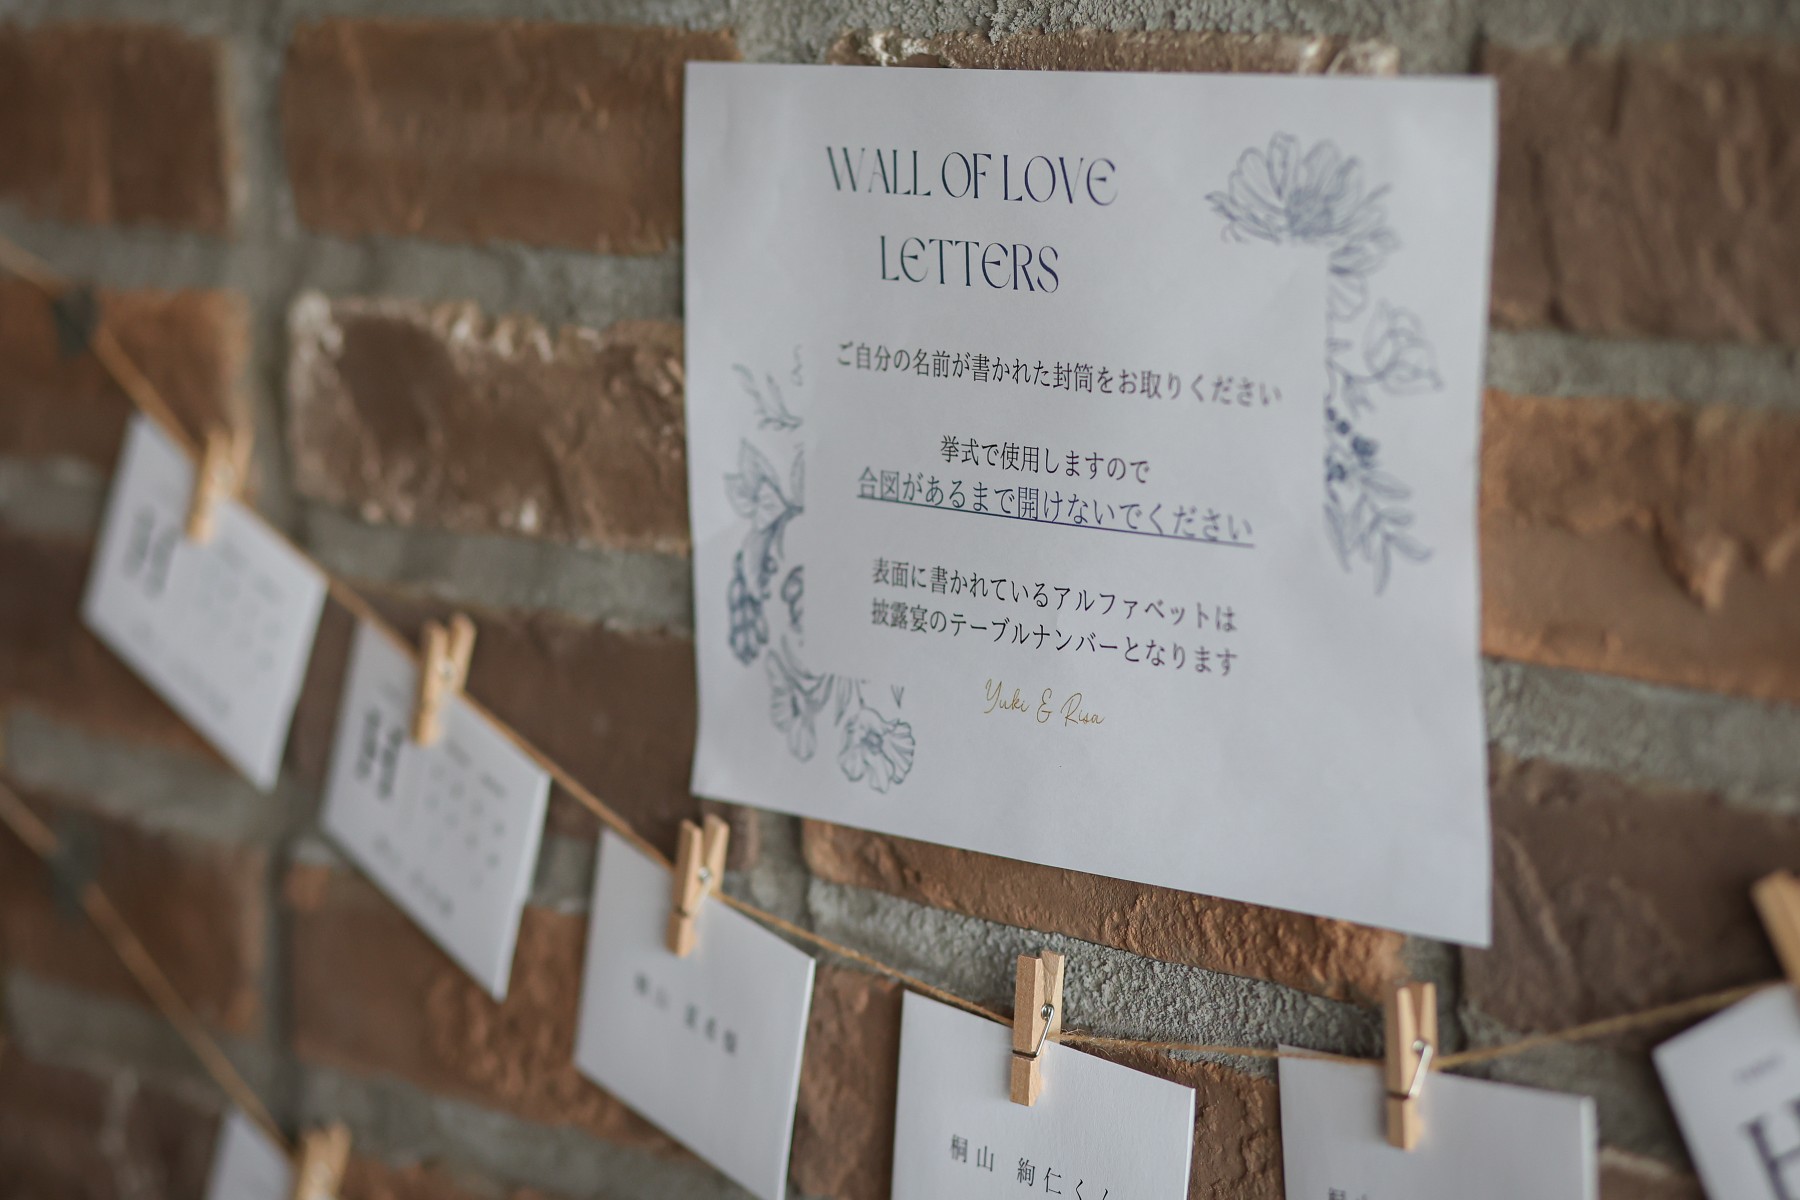 WALL OF LOVE
LETTERS
ご自分の名前が書かれた封筒をお取りください
挙式で使用しますので
合図があるまで開けないでください
表面に書かれているアルファベットは
披露宴のテーブルナンバーとなります
Yuki & Risa
H
H
桐山 絢仁くん
H